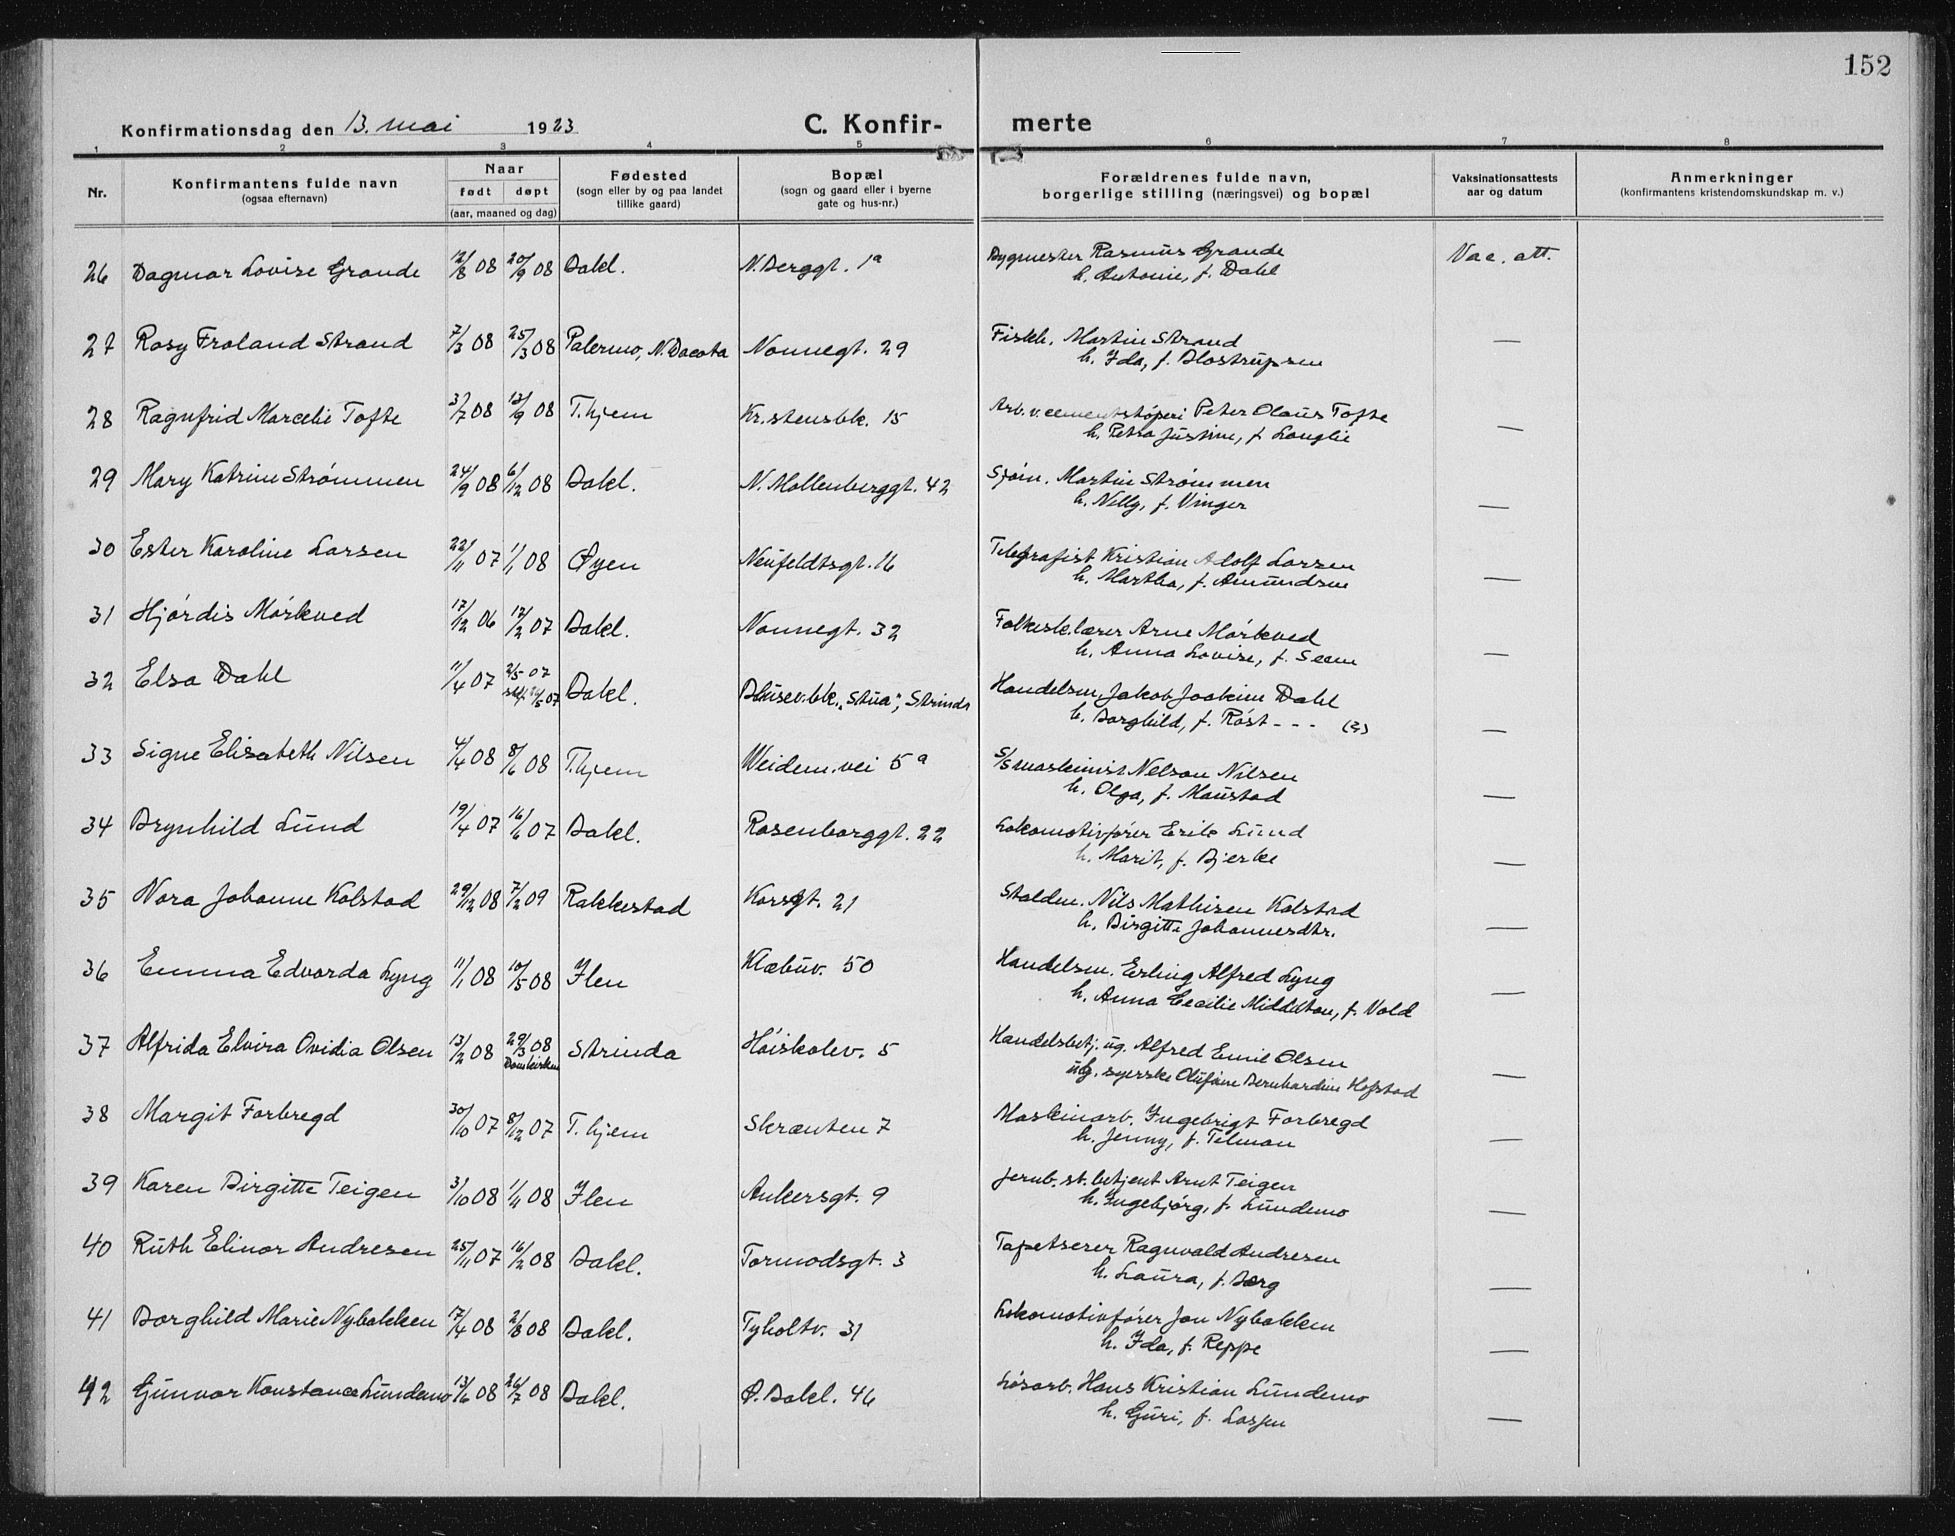 152
Konfirmationsdag den 13. mai 1923 C. Konfir- merte
1 2 3 4 5 6 7 8
Nr. Konfirmantens fulde navn (ogsaa efternavn) Naar født døpt (aar, maaned og dag) Fødested (sogn eller by og paa landet tillike gaard) Bopæl (sogn og gaard eller i byerne gate og hus-nr.) Forældrenes fulde navn, borgerlige stilling (næringsvei) og bopæl Vaksinationsattests aar og datum Anmerkninger (konfirmantens kristendomskundskap m. v.)
26 Dagmar Lovise Grande 12/8 08 20/9 08 Bakl. N. Berggt. 1a Bygmester Rasmus Grande Vac. att.
h. Antonie, f. Dahl
27 Rosy Froland Strand 7/3 08 25/3 08 Palermo, N. Dacota Nonnegt. 29 Fiskh. Martin Strand —
h. Ida, f. Blostrupsen
28 Ragnfrid Marcelie Tofte 3/7 08 13/9 08 T.hjem Kr.stensbk. 15 Arb. v. cementstøperi Peter Olaus Tofte
h. Petra Justine, f. Langlie —
29 Mary Katrine Strømmen 24/9 08 6/12 08 Bakl. N. Møllenberggt. 42 Sjøm. Martin Strømmen
h. Nelly, f. Vinger —
30 Ester Karoline Larsen 22/11 07 1/1 08 Øyen Neufeldtsgt. 16 Telegrafist Kristian Adolf Larsen
h. Martha, f. Amundsen —
31 Hjørdis Mørkved 17/12 06 17/2 07 Bakl. Nonnegt. 32 Folkesk.lærer Arne Mørkved
h. Anna Lovise, f. Seem —
32 Elsa Dahl 11/4 07 2/5 07 Bakl. Blusev.bk. "Stua", Strinda Handelsm. Jakob Joakim Dahl
h. Borghild, f. Røst - - - —
33 Signe Elisabeth Nilsen 4/4 08 8/6 08 T.hjem Weidem.vei 5a S/S maskinist Nelson Nilsen
h. Olga, f. Maustad —
34 Brynhild Lund 19/4 07 16/6 07 Bakl. Rosenborggt. 22 Lokomotivfører Erik Lund
h. Marit, f. Bjerke —
35 Nora Johanne Kolstad 29/12 08 7/2 09 Rakkestad Korsgt. 21 Staldm. Nils Mathisen Kolstad
h. Birgitte Johannesdtr. —
36 Emma Edvarda Lyng 11/1 08 10/5 08 Ilen Klæbuv. 50 Handelsm. Erling Alfred Lyng
h. Anna Cecilie Middelton, f. Vold —
37 Alfrida Elvira Ovidia Olsen 13/2 08 29/3 08 Domkirken Strinda Høiskolev. 5 Handelsbetj. ug. Alfred Emil Olsen
ug. syerske Olufine Bernhardine Hofstad —
38 Margit Forbregd 30/10 07 8/12 07 T.hjem Skrænten 7 Maskinarb. Ingebrigt Forbregd
h. Jenny, f. Tilman —
39 Karen Birgitte Teigen 3/10 08 1/11 08 Ilen Ankersgt. 9 Jernb. st. betjent Arnt Teigen
h. Ingebjørg, f. Lundemo —
40 Ruth Elinor Andresen 25/11 07 16/2 08 Bakl. Tormodsgt. 3 Tapetserer Ragnvald Andresen
h. Laura, f. Berg —
41 Borghild Marie Nybakken 17/4 08 2/8 08 Bakl. Tyholtv. 31 Lokomotivfører Jon Nybakken
h. Ida, f. Reppe —
42 Gunvor Konstance Lundemo 13/6 08 26/7 08 Bakl. Ø. Bakl. 46 Løsarb. Hans Kristian Lundemo
h. Guri, f. Lossen —